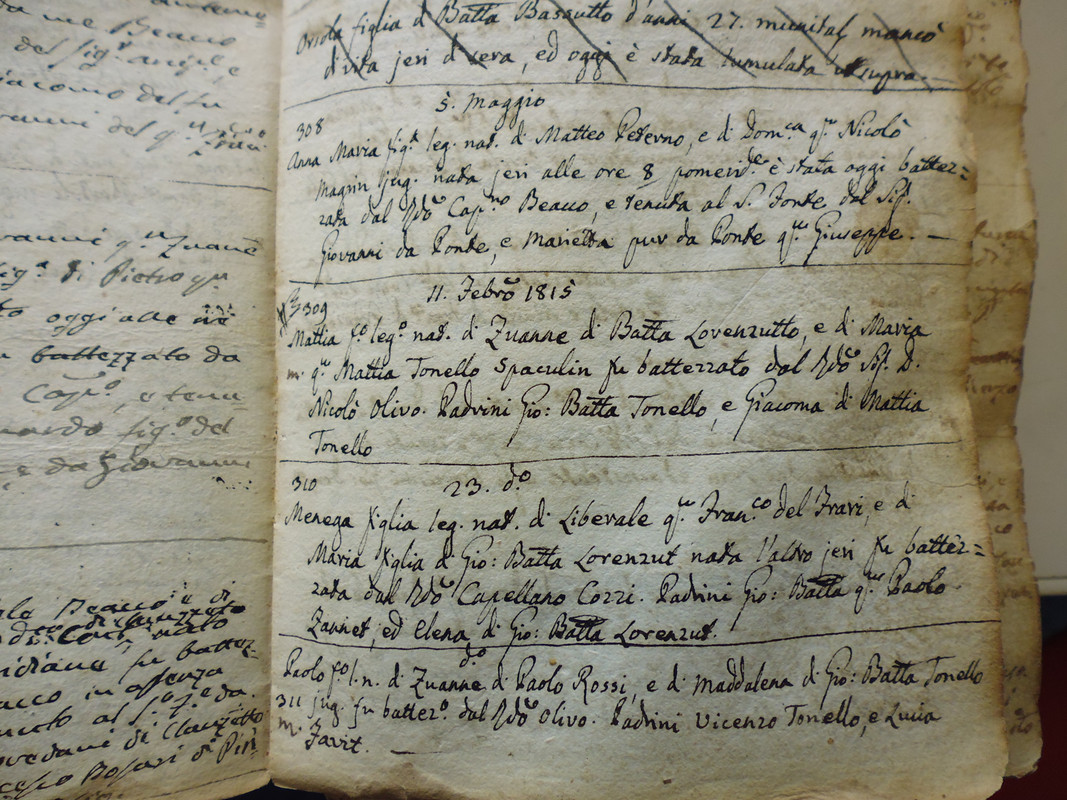 antonio
da me Beacco
del sig.r ang.lo, e
Giacomo del fu
ovanni del q.m
ovanni q.m Zuane
fig.a di Pietro q.m
to oggi alle
battezzato da
Cap.o, e tenu-
nardo fig.o del
e da Giovanni
olo Beacco e di
nato
ridiane fu battez-
acco in assenza
nuto al S. F. da
ovedani di Clauzetto
cesco Bosari di Piri
Orsola figlia d Batta Basutto d'anni 27. munita mancò
di vita jeri d sera, ed oggi è stata tumulata ut supra.
5. Maggio
308
Anna Maria fig.a leg. nat. di Matteo Peterno, e di Dom.ca q.m Nicolò
Magrin jug. nata jeri alle ore 8 pomerid.e è stata oggi battez=
zata dal Rdo Cap.no Beacco, e tenuta al S. Fonte dal Sig.
Giovanni da Ponte, e Marietta pur da Ponte q.m Giuseppe. —
11. Febro 1815
309
Mattia f.o leg.o nat. di Zuanne di Batta Lorenzutto, e di Maria
m. q.m Mattia Tonello Spaculin fu battezzato dal Rdo Sig. D.
Nicolò Olivo. Padrini Gio: Batta Tonello, e Giacoma di Mattia
Tonello
310 23. do
Menega figlia leg. nat. di Liberale q.m Fran.co del Fravi, e di
Maria figlia di Gio: Batta Lorenzut nata l'altro jeri fu battez=
zata dal Rdo Capellano Cozzi. Padrini Gio: Batta q.m Paolo
Zannet, ed Elena di Gio: Batta Lorenzut.
do
Paolo f.o l. n. di Zuanne di Paolo Rossi, e di Maddalena di Gio: Batta Tonello
311 jug. fu battez.o dal Rdo Olivo. Padrini Vicenzo Tonello, e Lucia
m. Javit. —